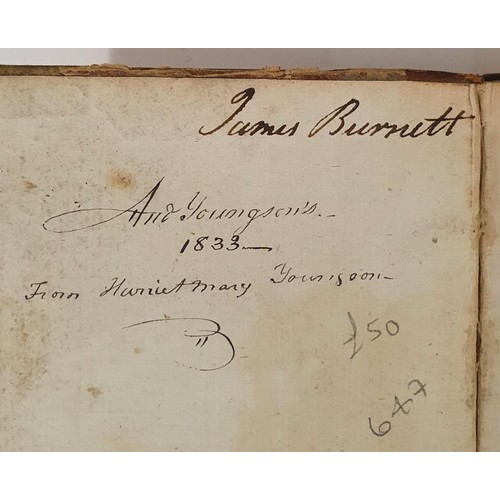 James Burnett
And Youngson's.
1833
From Harriet Mary Youngson
£50
647